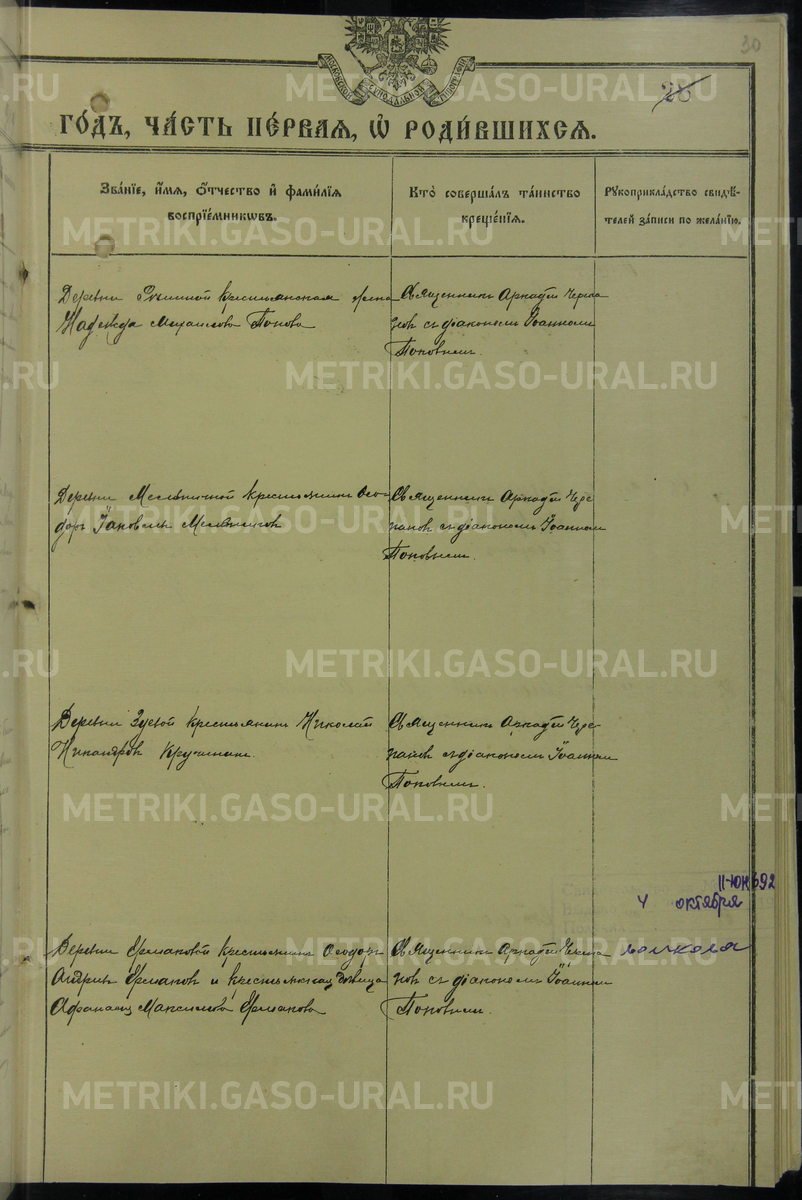 30
26
МОСКОВСКОЙ СѴНОДАЛЬНОЙ ТИПОГРАФІИ
ГО́ДЪ, ЧА́СТЬ ПЕ́РВАЯ, Ѡ҆ РОДИ́ВШИХСЯ.
Зва́нїе, и҆́мѧ, ѻ҆́тчество и҆ фами́лїѧ
воспрїе́мникѡвъ.
Кто̀ соверша́лъ та́инство
креще́нїѧ.
Рꙋкоприкла́дство свидѣ́-
телей за́писи по жела́нїю.
Деревни крестьянская жена
Надежда Михаилова Попова
Священникъ Аркадій Черепа
новъ съ діакономъ Іоанномъ
Поповымъ.
Деревни Мельничной крестьянинъ Ѳео-
доръ Іаковлевъ Мельниковъ
Священникъ Аркадій Чере
пановъ съ діакономъ Іоанномъ
Поповымъ.
Деревни Зуевой крестьянинъ Николай
Никандровъ
Священникъ Аркадій Чере-
пановъ съ діакономъ Іоанномъ
Поповымъ.
11-ЮН 692
4 октября
Деревни Ермаковой крестьянинъ Ѳеодоръ
Андреевъ Ермаковъ и крестьянская дѣвица
Максимова Ермакова
Священникъ Аркадій Черепа
новъ съ діакономъ Іоанномъ
Поповымъ.
METRIKI.GASO-URAL.RU